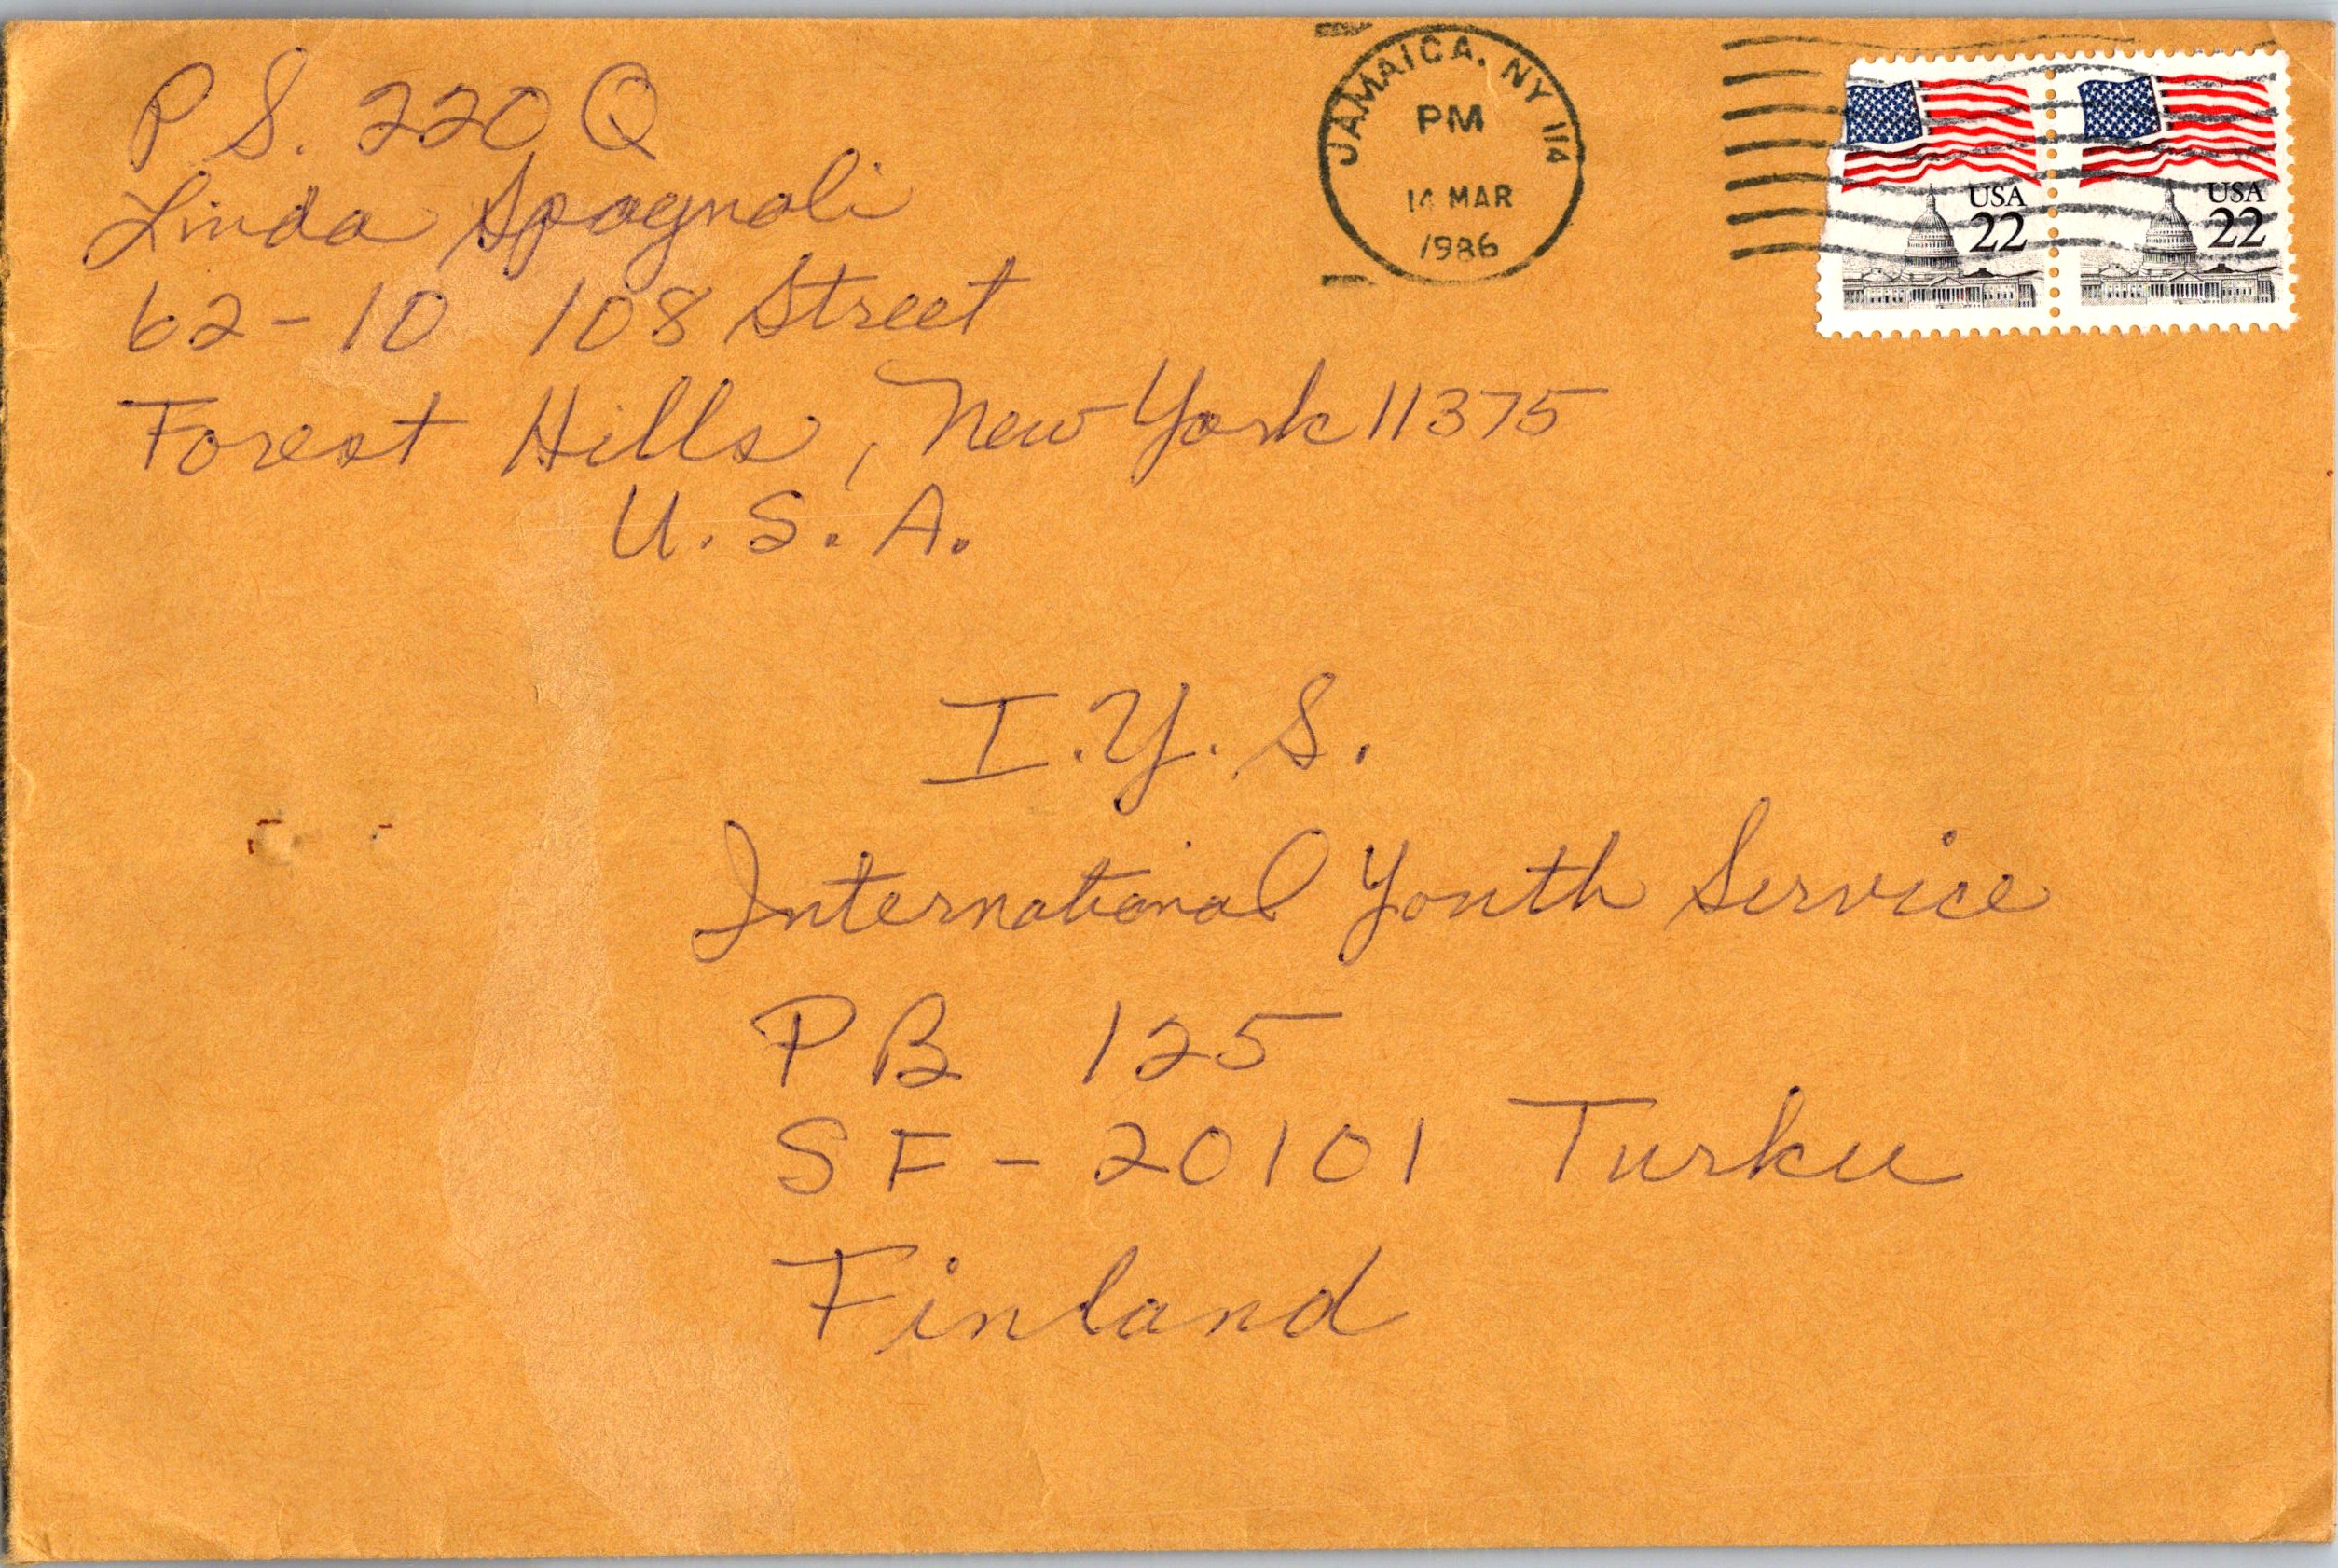 P S. 220 Q
Linda Spagnoli
62-10 108 Street
Forest Hills, New York 11375
U.S.A.
JAMAICA, NY 114
PM
14 MAR
1986
USA
22
USA
22
I.Y.S.
International Youth Service
PB 125
SF-20101 Turku
Finland